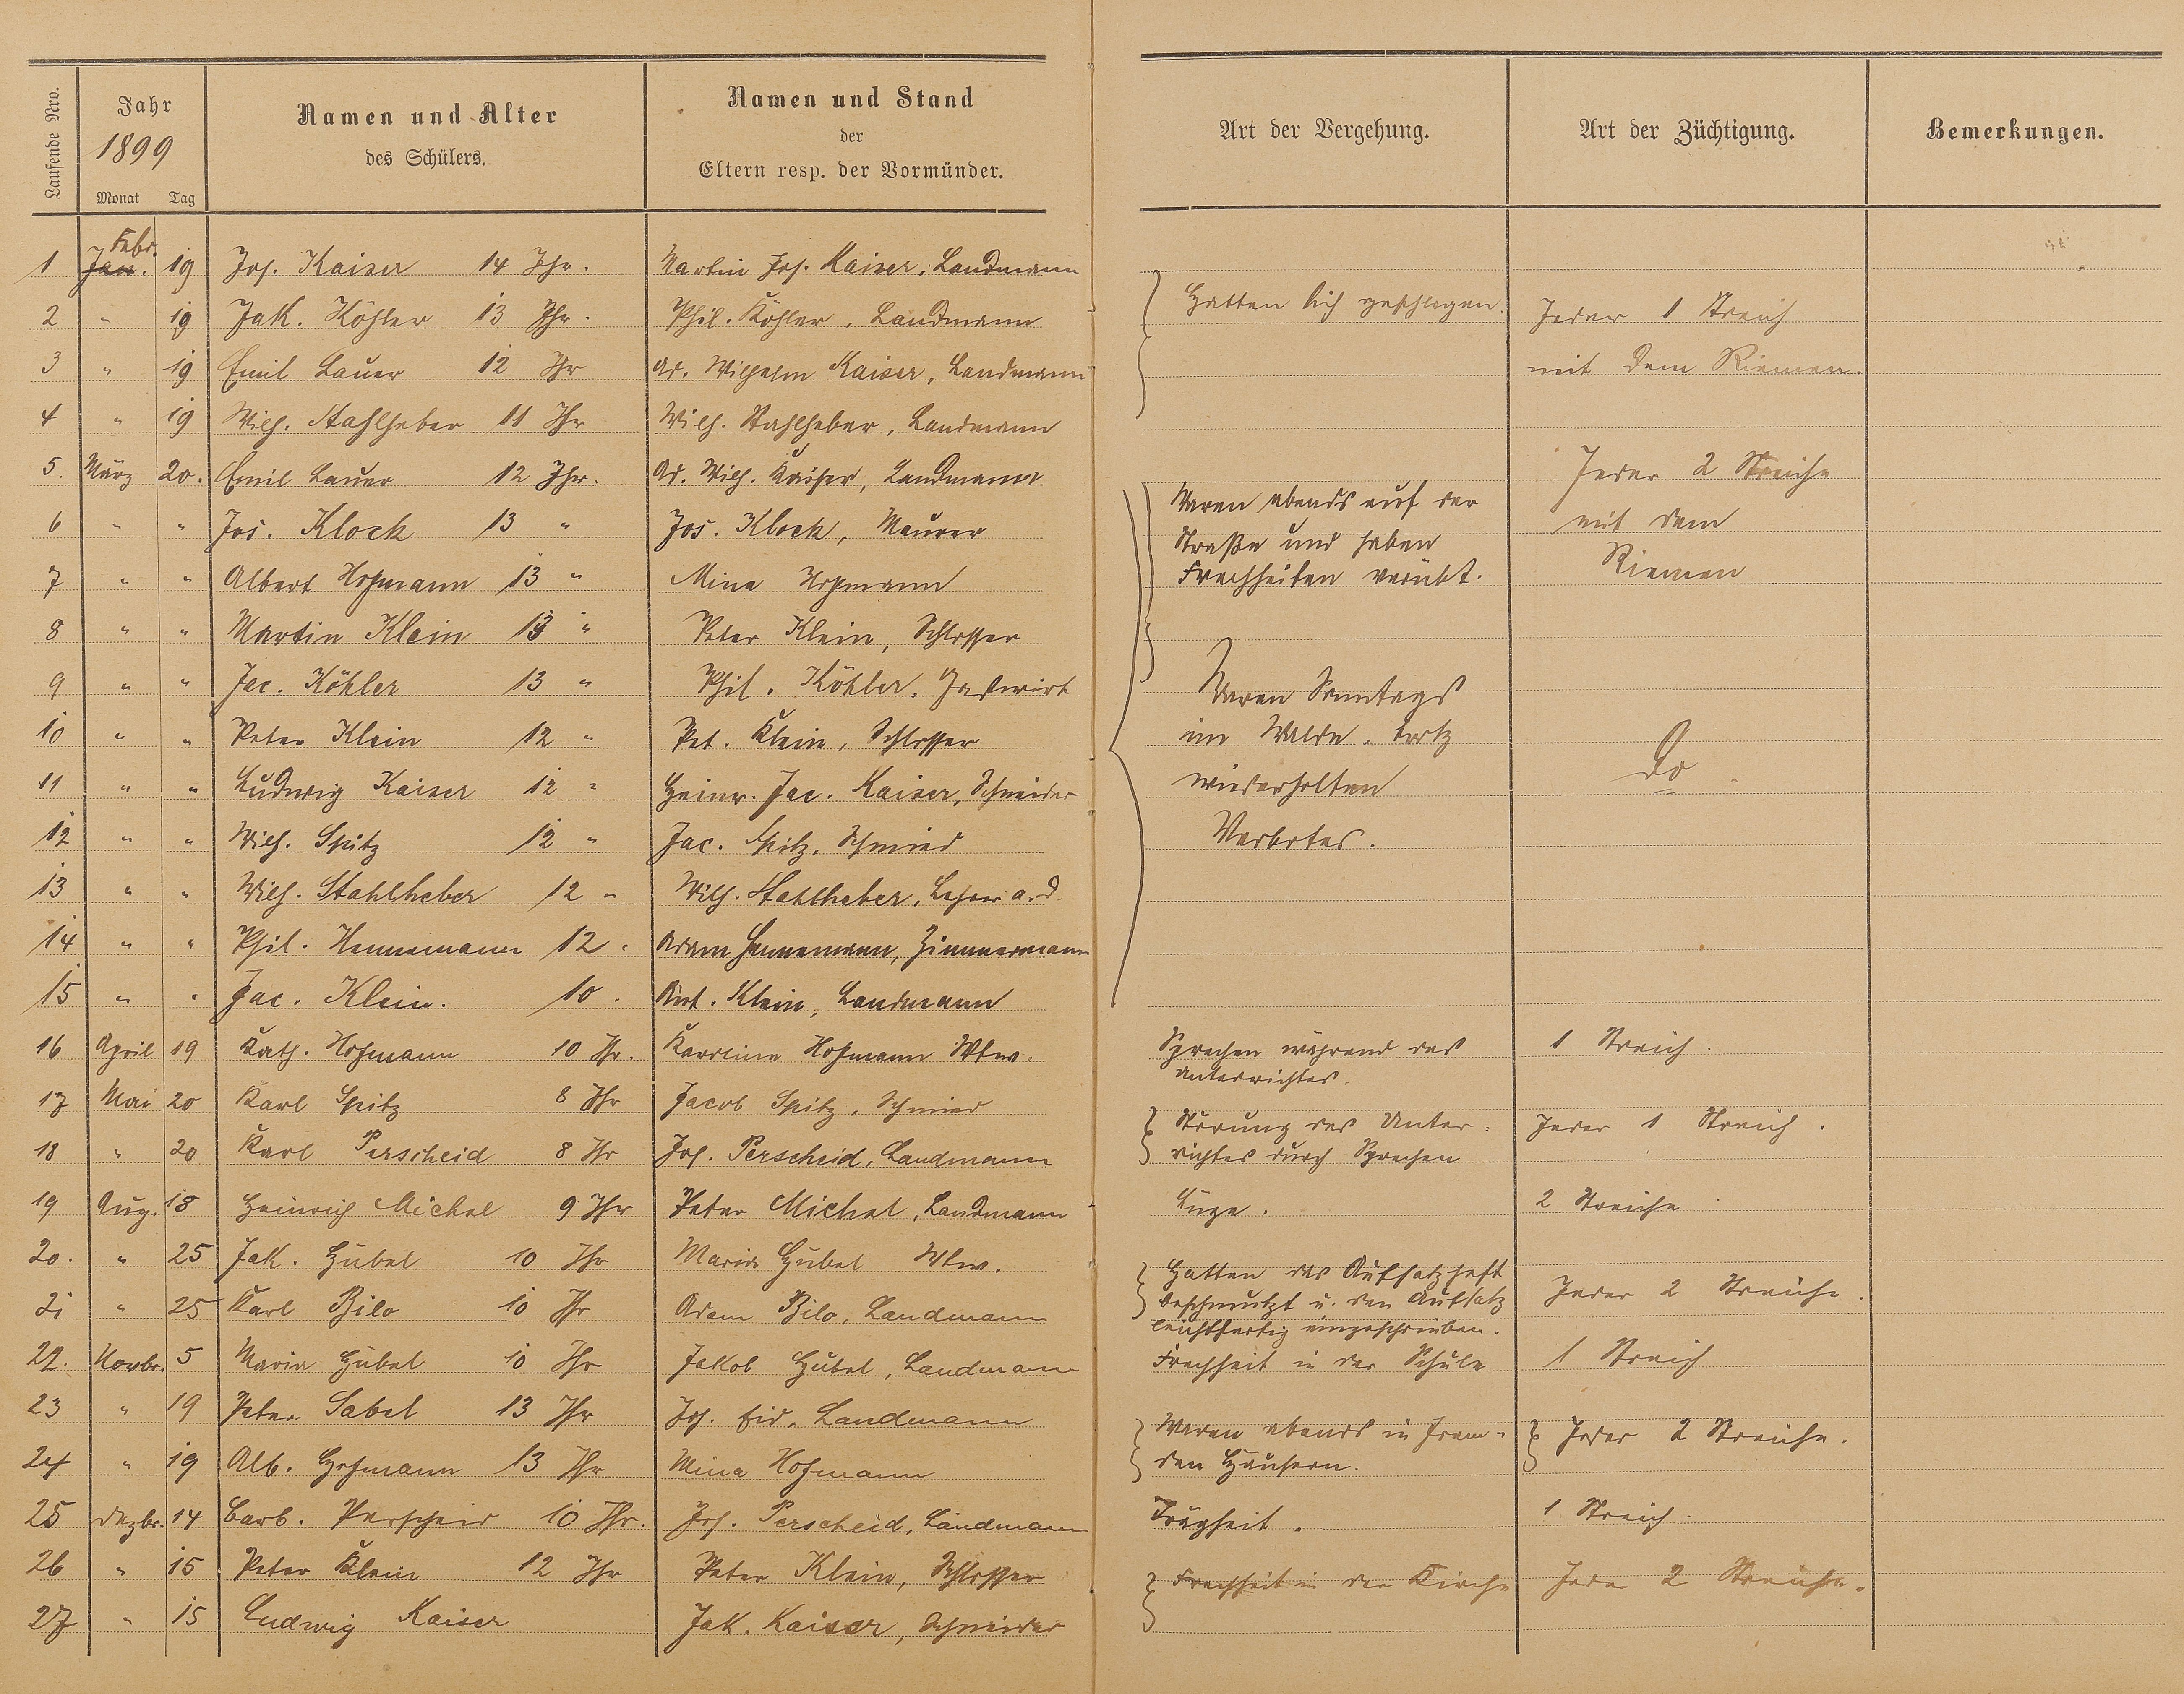 Laufende Nro.
Jahr
1899
Monat Tag
Namen und Alter
des Schülers.
Namen und Stand
der
Eltern resp. der Vormünder.
Art der Vergehung.
Art der Züchtigung.
Bemerkungen.
Febr.
1 Jan. 19 Jos. Kaiser 14 Jhr. Martin Jos. Kaiser, Landmann
2 " 19 Jak. Köhler 13 Jhr. Phil. Köhler, Landmann
3 " 19 Emil Lauer 12 Jhr Ad. Wilhelm Kaiser, Landmann
4 " 19 Wilh. Stahlheber 11 Jhr Wilh. Stahlheber, Landmann
Hatten sich geschlagen.
Jeder 1 Streich
mit dem Riemen.
5. März 20. Emil Lauer 12 Jhr. Ad. Wilh. Kaiser, Landmann
6 " " Jos. Klock 13 " Jos. Klock, Maurer
7 " " Albert Hofmann 13 " Mina Hofmann
8 " " Martin Klein 13 " Peter Klein, Schlosser
9 " " Jac. Köhler 13 " Phil. Köhler, Gastwirt
10 " " Peter Klein 12 " Pet. Klein, Schlosser
11 " " Ludwig Kaiser 12 " Heinr. Jac. Kaiser, Schneider
12 " " Wilh. Spitz 12 " Jac. Spitz, Schmied
13 " " Wilh. Stahlheber 12 " Wilh. Stahlheber, Lehrer a. d.
14 " " Phil. Hennemann 12 " Adam Hennemann, Zimmermann
15 " " Jac. Klein. 10 . Ant. Klein, Landmann
Waren abends auf der
Straße und haben
Frechheiten verübt.
Jeder 2 Streiche
mit dem
Riemen
Waren Sonntags
im Walde, trotz
wiederholten
Verbotes.
do
16 April 19 Kath. Hofmann 10 Jhr. Karolina Hofmann Wtw. Sprechen während des 1 Streich.
Unterrichtes.
17 Mai 20 Karl Spitz 8 Jhr Jacob Spitz, Schmied
18 " 20 Karl Perscheid 8 Jhr Jos. Perscheid, Landmann
Störung des Unter= Jeder 1 Streich.
richtes durch Sprechen
19 Aug. 18 Heinrich Michel 9 Jhr Peter Michel, Landmann Lüge. 2 Streiche
20. " 25 Jak. Hübel 10 Jhr Maria Hübel Wtw.
21 " 25 Karl Bilo 10 Jhr Adam Bilo, Landmann
Hatten das Aufsatzheft
beschmutzt u. den Aufsatz Jeder 2 Streiche.
leichtfertig eingeschrieben.
22. Novbr. 5 Maria Hübel 10 Jhr Jakob Hübel, Landmann Frechheit in der Schule 1 Streich
23 " 19 Peter Sabel 13 Jhr Jos. Eid, Landmann
24 " 19 Alb. Hofmann 13 Jhr Mina Hofmann
Waren abends in frem= Jeder 2 Streiche.
den Häusern.
25 Dezbr. 14 Barb. Perscheid 10 Jhr. Jos. Perscheid, Landmann Trägheit. 1 Streich.
26 " 15 Peter Klein 12 Jhr Peter Klein, Schlosser Frechheit in der Kirche Jeder 2 Streiche.
27 " 15 Ludwig Kaiser Jak. Kaiser, Schneider